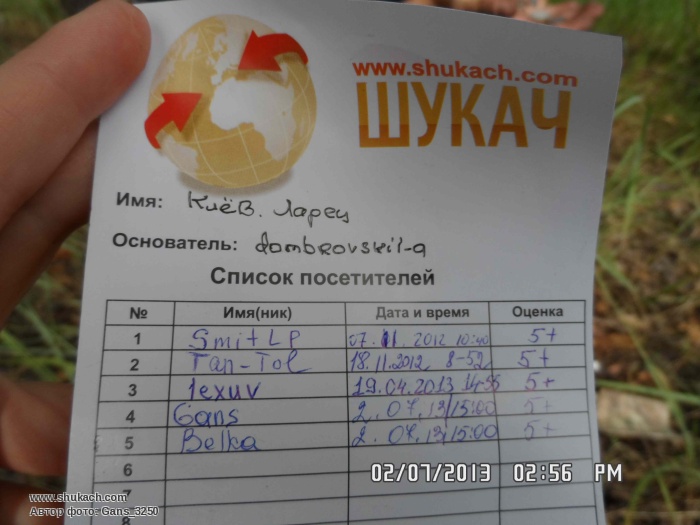 www.shukach.com
ШУКАЧ
Имя: Клёв. Ларец
Основатель: dombrovskil-a
Список посетителей
№ Имя(ник) Дата и время Оценка
1 Smit LP 07.11 2012 10:40 5+
2 Tan-Tol 18.11.2012 8-52 5+
3 lexuv 19.04.2013 14-55 5+
4 Gans 2.07.13/15:00 5+
5 Belka 2.07.13/15:00 5+
6
7
8
02/07/2013 02:56 PM
www.shukach.com
Автор фото: Gans_3250